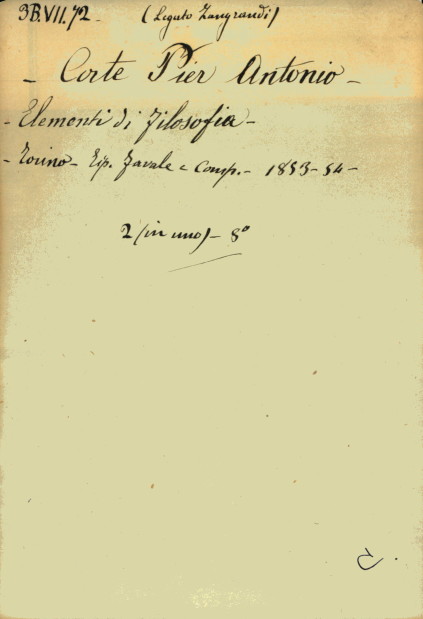 3B.VII.72 - (Legato Zangrandi)
- Corte Pier Antonio -
- Elementi di Filosofia -
- Torino - Tip. Favale e Comp. - 1853-54 -
2 (in uno) - 8°